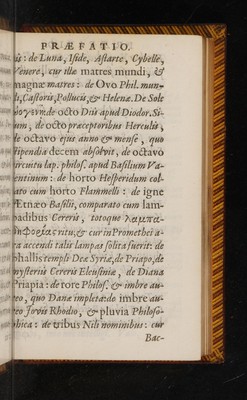 PRÆFATIO.
is: de Luna, Iside, Astarte, Cybelle,
Venere, cur illæ matres mundi, &
magnæ matres: de Ovo Phil. mun-
di, Castoris, Pollucis, & Helenæ. De Sole
de octo Diis apud Diodor. Si-
um, de octo præceptoribus Herculis,
de octavo ejus anno & mense, quo
stipendia decem absolvit, de octavo
circuitu lap. philos. apud Basilium Va-
entinum: de horto Hesperidum col-
ato cum horto Flammelli: de igne
Ætnæo Basilii, comparato cum lam-
padibus Cereris, totoque λαμπα-
δηφορίας ritu, & cur in Promethei a-
ra accendi talis lampas solita fuerit: de
phallis templi Deæ Syriæ, de Priapo, de
mysteriis Cereris Eleusiniæ, de Diana
Priapia: de tore Philos. & imbre au-
reo, quo Danæ impleta: de imbre au-
reo Jovis Rhodio, & pluvia Philoso-
phica: de tribus Nili nominibus: cur
Bac-